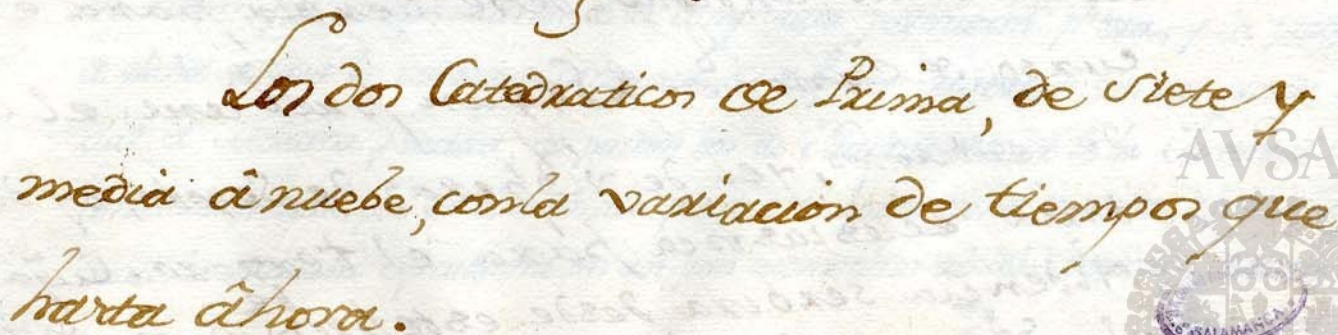 Los dos Catedraticos de Prima, de siete y
media â nuebe, con la variacion de tiempos que
hasta âhora.
AVSA
SALAMANCA